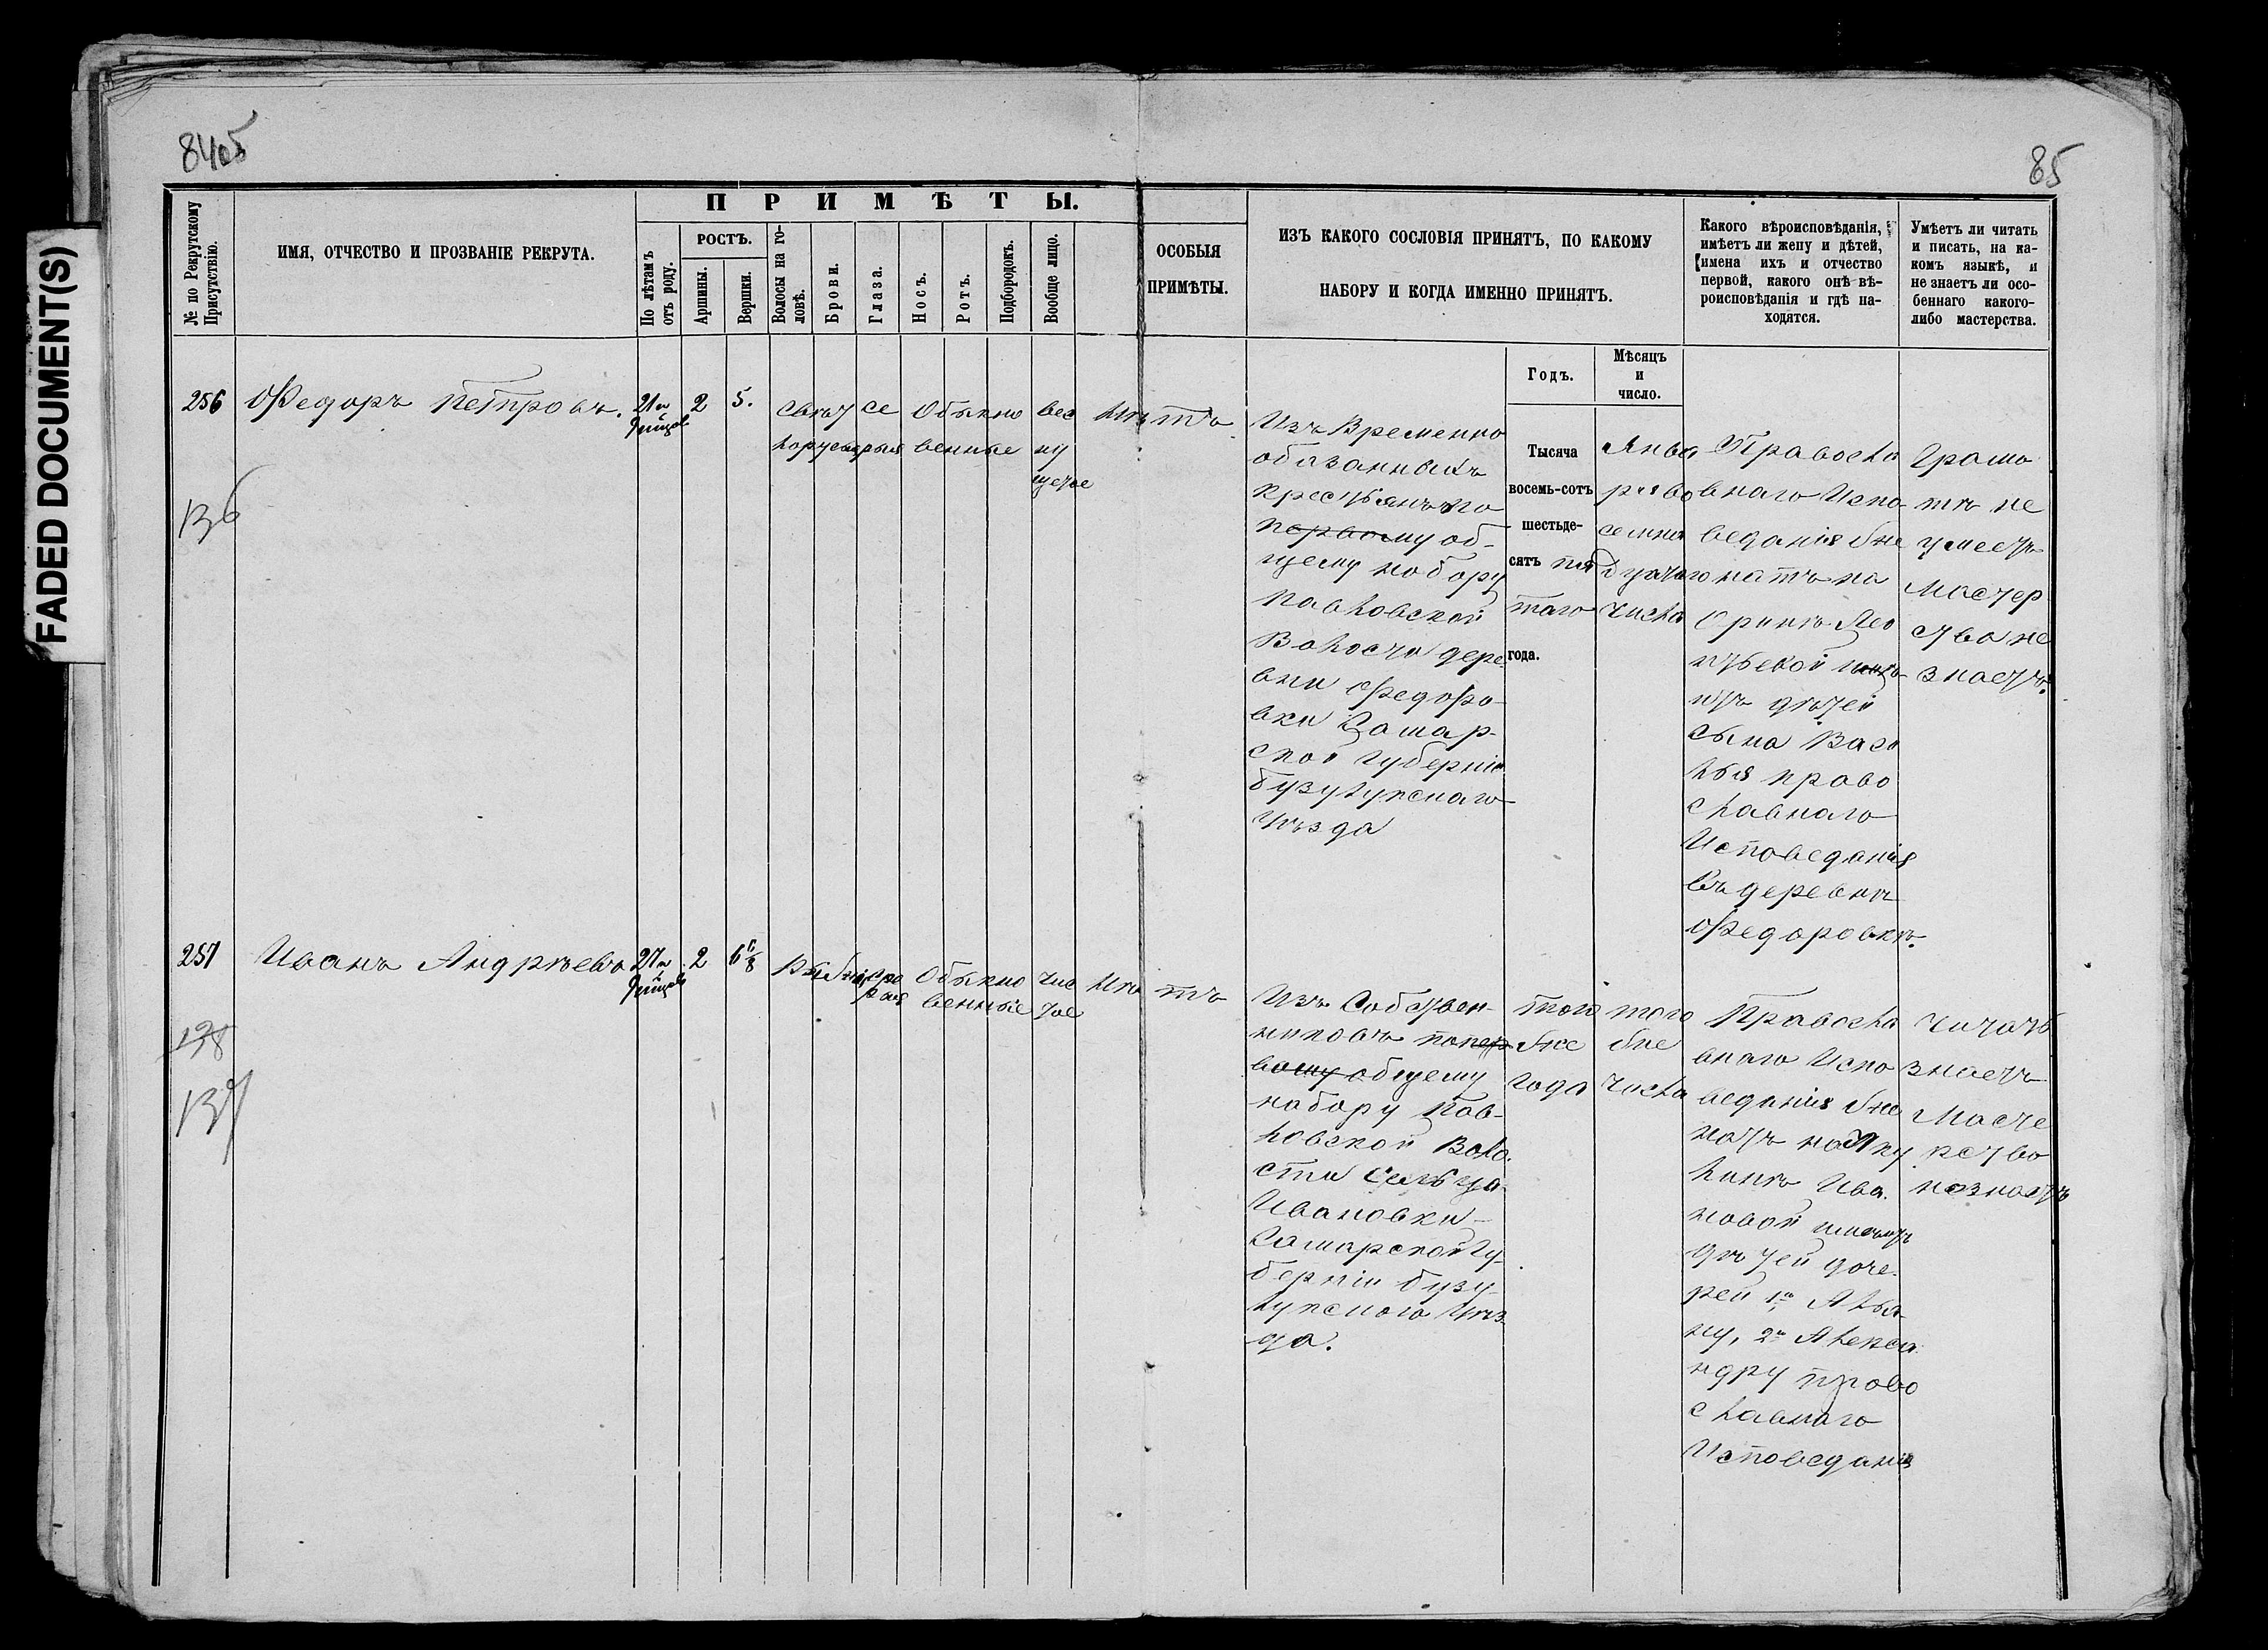 84об
85
FADED DOCUMENT(S)
№ по Рекрутскому
Присутствію.
ИМЯ, ОТЧЕСТВО И ПРОЗВАНІЕ РЕКРУТА.
ПРИМѢТЫ.
По лѣтамъ
отъ роду.
РОСТЪ.
Аршины.
Вершки.
Волосы на го-
ловѣ.
Брови.
Глаза.
Носъ.
Ротъ.
Подбородокъ.
Вообще лицо.
ОСОБЫЯ
ПРИМѢТЫ.
ИЗЪ КАКОГО СОСЛОВІЯ ПРИНЯТЪ, ПО КАКОМУ
НАБОРУ И КОГДА ИМЕННО ПРИНЯТЪ.
Какого вѣроисповѣданія,
имѣетъ ли жену и дѣтей,
имена ихъ и отчество
первой, какого онѣ вѣ-
роисповѣданія и гдѣ на-
ходятся.
Умѣетъ ли читать
и писать, на ка-
комъ языкѣ, и
не знаетъ ли осо-
беннаго какого-
либо мастерства.
Годъ.
Мѣсяцъ
и
число.
256
Федоръ Петровъ.
21
2
5.
свѣт
лорус
се
рыя
Обыкно
венные
вес
ну
щетое
Нѣтъ
136
Изъ Временно
обязанныхъ
крестьянъ по
первому об-
щему набору
Павловской
Волости дере
вни Федоро-
вки Самар-
ской Губерніи
Бузулукскаго
Уѣзда
Тысяча
восемь-сотъ
шестьде-
сятъ пя
таго
года.
Янва
ря во
семна
дцатаго
числа
Правосла
внаго Испо
веданія же
натъ на
Аринѣ Лео
нтьевой имѣ
етъ дѣтей
сына Васи
лья право
славнаго
Исповеданія
въ деревнѣ
Федоровкѣ.
Грамо
тѣ не
умеетъ
Мастер
ства не
знаетъ.
257
Иванъ Андреевъ
21
2
6 1/8
Обыкно
венные
чис
тое
Нѣтъ
138
137
Изъ Собствен-
никовъ попер
вому общему
набору Пав-
ловской Воло-
сти Сельца
Ивановки
Самарской Гу-
берніи Бузу-
лукскаго Уѣз-
да.
того
же
года
того
же
числа
Правосла
внаго Испо
веданія же
натъ на Аку
линѣ Ива-
новой имеетъ
дѣтей доче-
рей 1ю Улья-
ну, 2ю Алекса
ндру право
славнаго
Исповеданія
читать
знаетъ
Масте
рство
незнаетъ